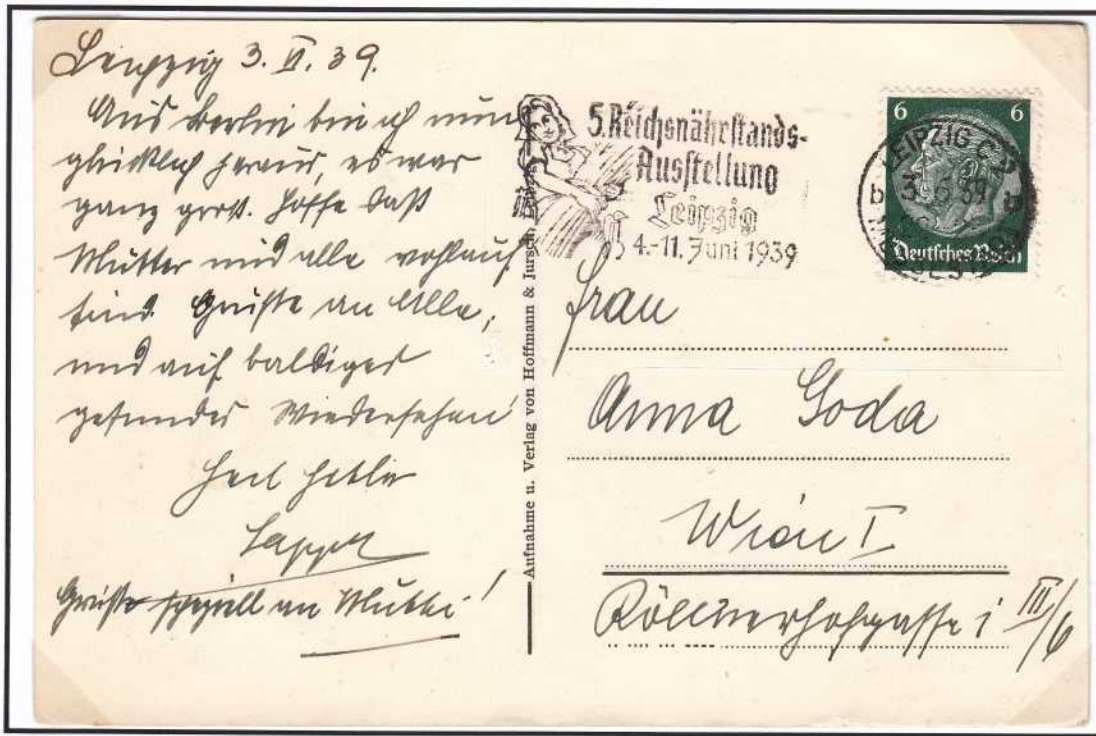 Leipzig 3. VI. 39.
Aus Berlin bin ich nun
glücklich heraus, es war
ganz groß. Hoffe daß
Mutter und alle wohlauf
sind. Grüße an Alle,
und auf baldiges
gesundes Wiedersehen!
Heil Hitler
Grüße speziell an Mutti!
Aufnahme u. Verlag von Hoffmann & Jursch
5. Reichsnährstands-
Ausstellung
Leipzig
4.-11. Juni 1939
6 6
LEIPZIG C2
b 3.6.39
Deutsches Reich
Frau
Anna Goda
Wien I
Köllnerhofgasse 1 III/6